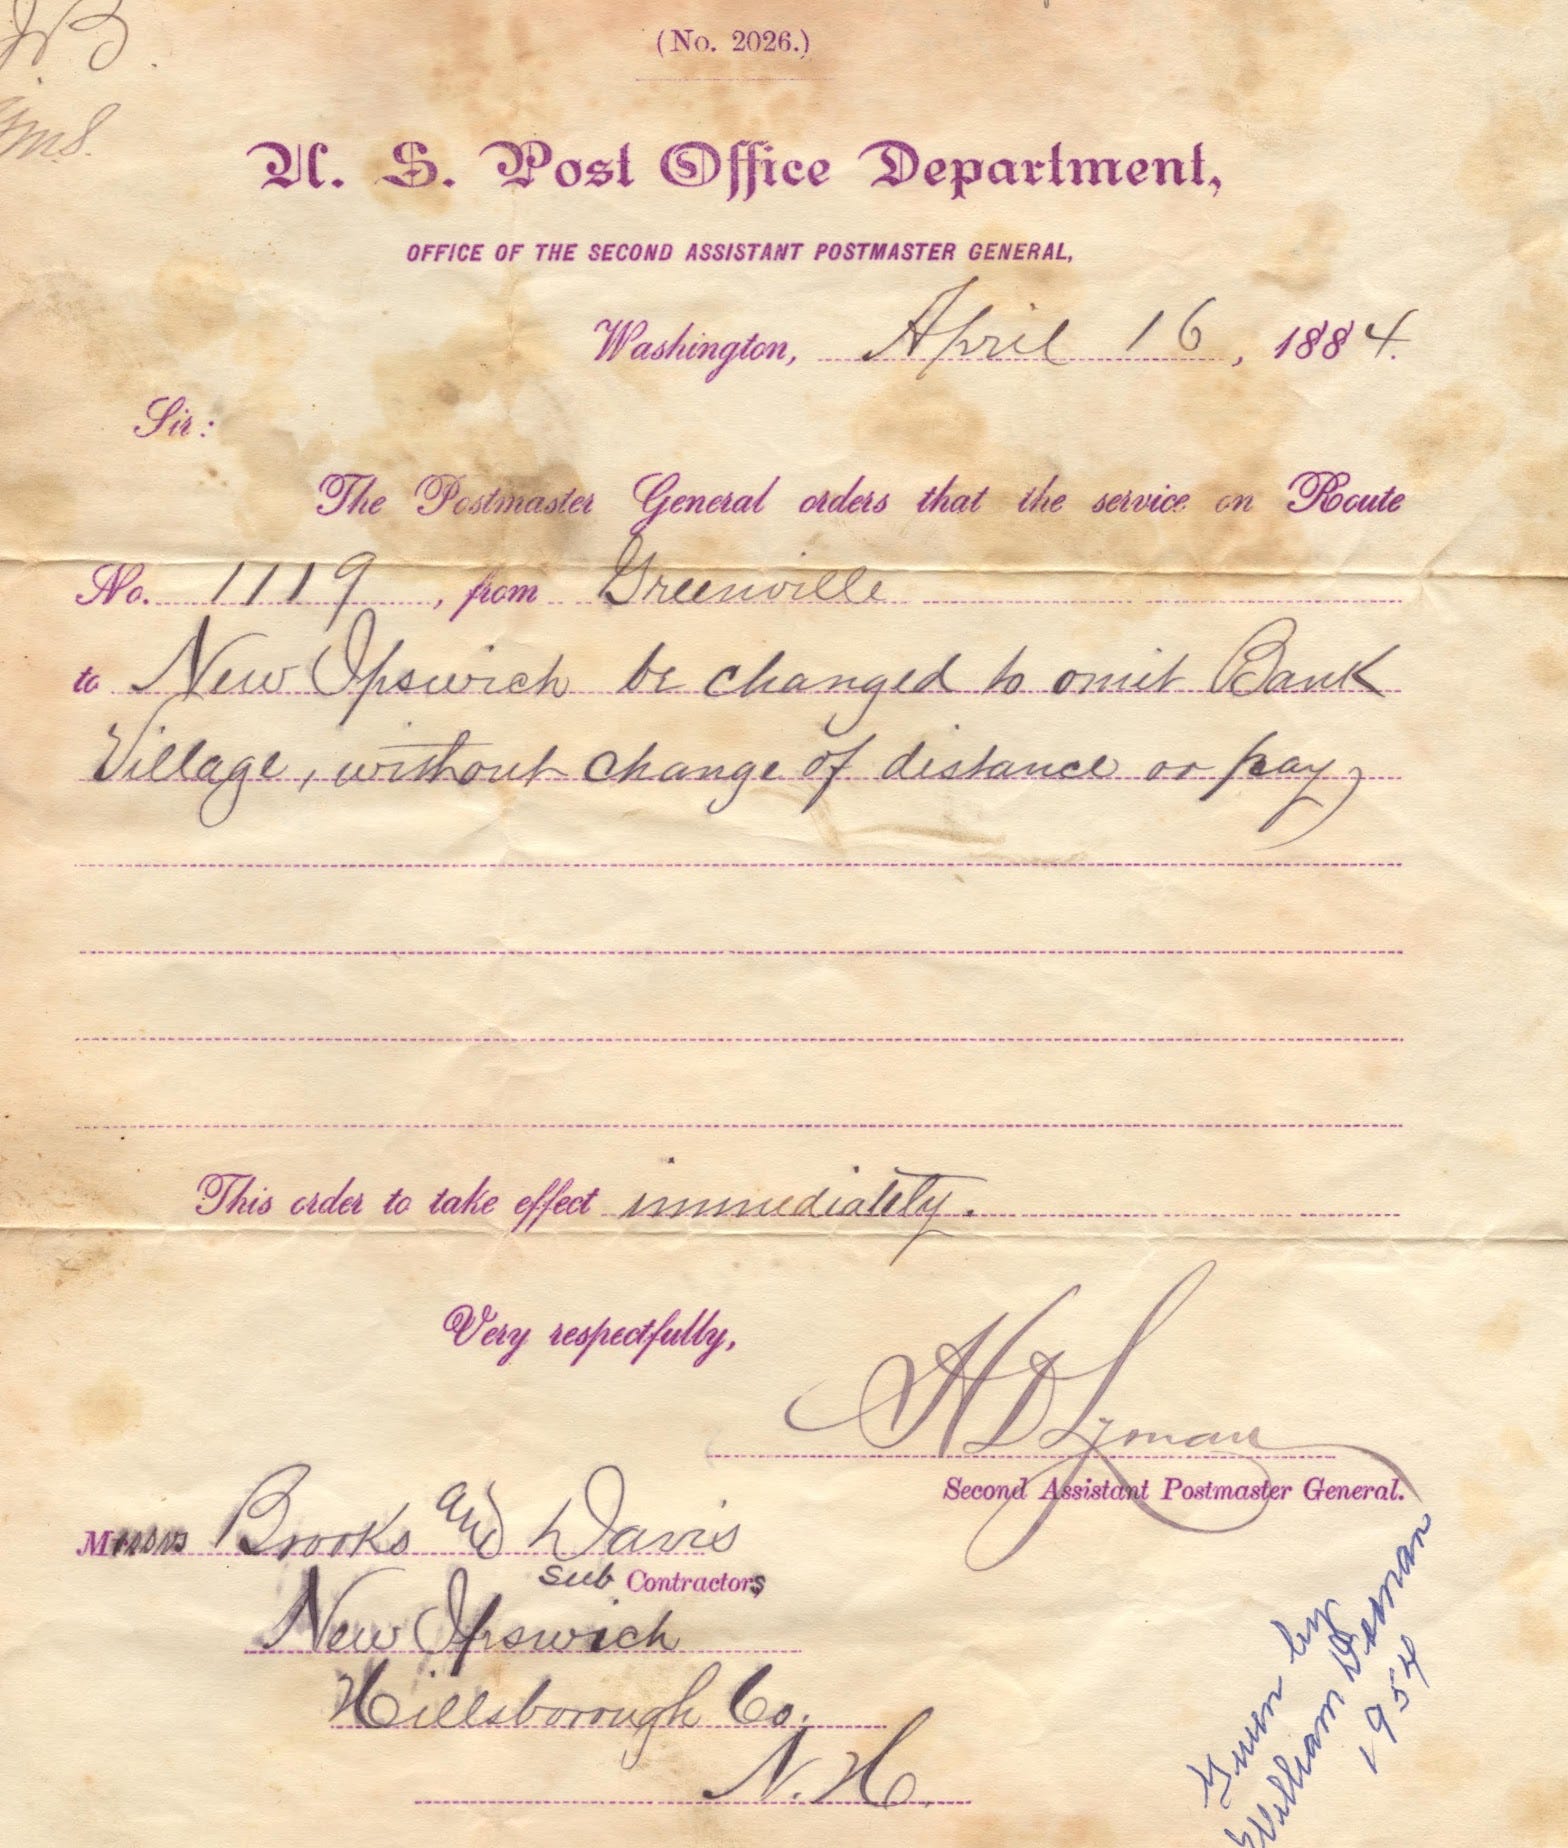 JB.
(No. 2026.)
U. S. Post Office Department,
OFFICE OF THE SECOND ASSISTANT POSTMASTER GENERAL,
Washington, April 16, 1884.
Sir:
The Postmaster General orders that the service on Route
No. 1119, from Greenville
to New Ipswich be changed to omit Bank
Village, without change of distance or pay,
This order to take effect immediately.
Very respectfully,
H D Lyman
Second Assistant Postmaster General.
Messrs Brooks and Davis
Sub Contractors
New Ipswich
Hillsborough Co.
N. H.
Given by
William
1954